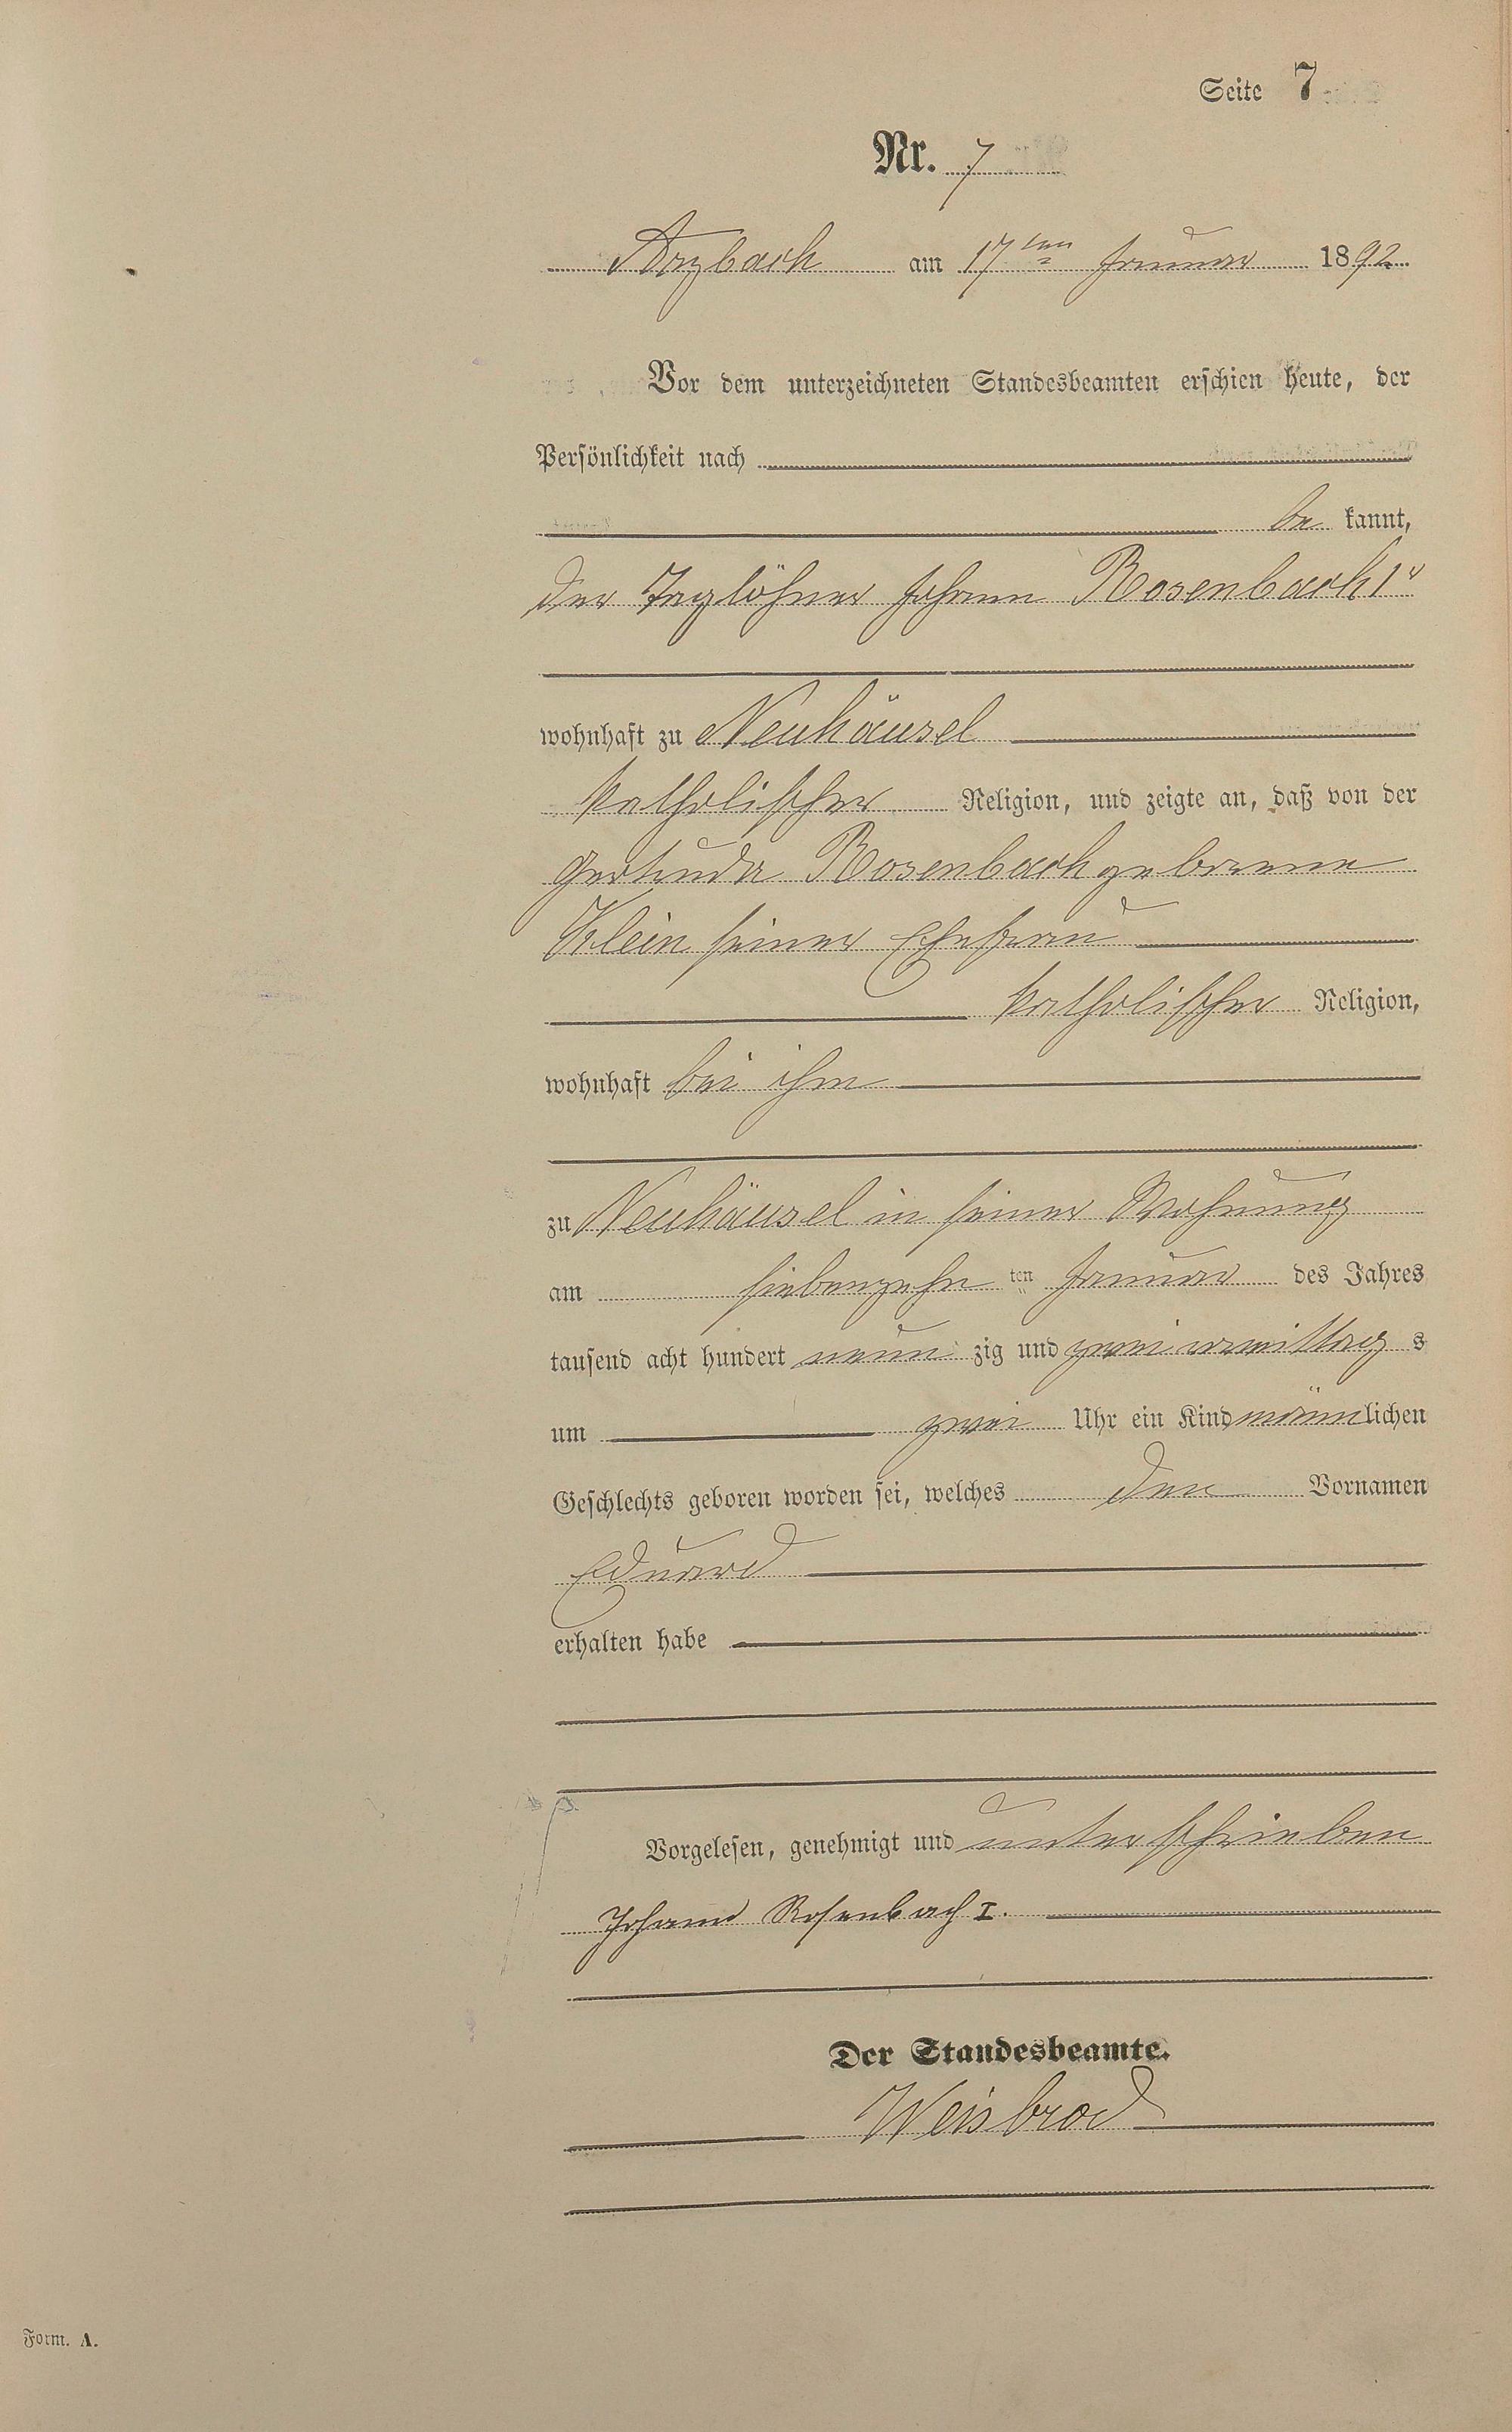 Seite 7
Nr. 7
Arzbach am 17ten Januar 1892
Vor dem unterzeichneten Standesbeamten erschien heute, der
Persönlichkeit nach
be kannt,
der Taglöhner Johann Rosenbach 1r
wohnhaft zu Neuhäusel
katholischer Religion, und zeigte an, daß von der
Gertruda Rosenbach geborene
Klein seiner Ehefrau
katholischer Religion,
wohnhaft bei ihm
zu Neuhäusel in seiner Wohnung
am siebenzehn ten Januar des Jahres
tausend acht hundert neun zig und zwei vormittag s
um zwei Uhr ein Kind männlichen
Geschlechts geboren worden sei, welches den Vornamen
Eduard
erhalten habe
Vorgelesen, genehmigt und unterschrieben
Johann Rosenbach I.
Der Standesbeamte.
Weisbrod
Form. A.